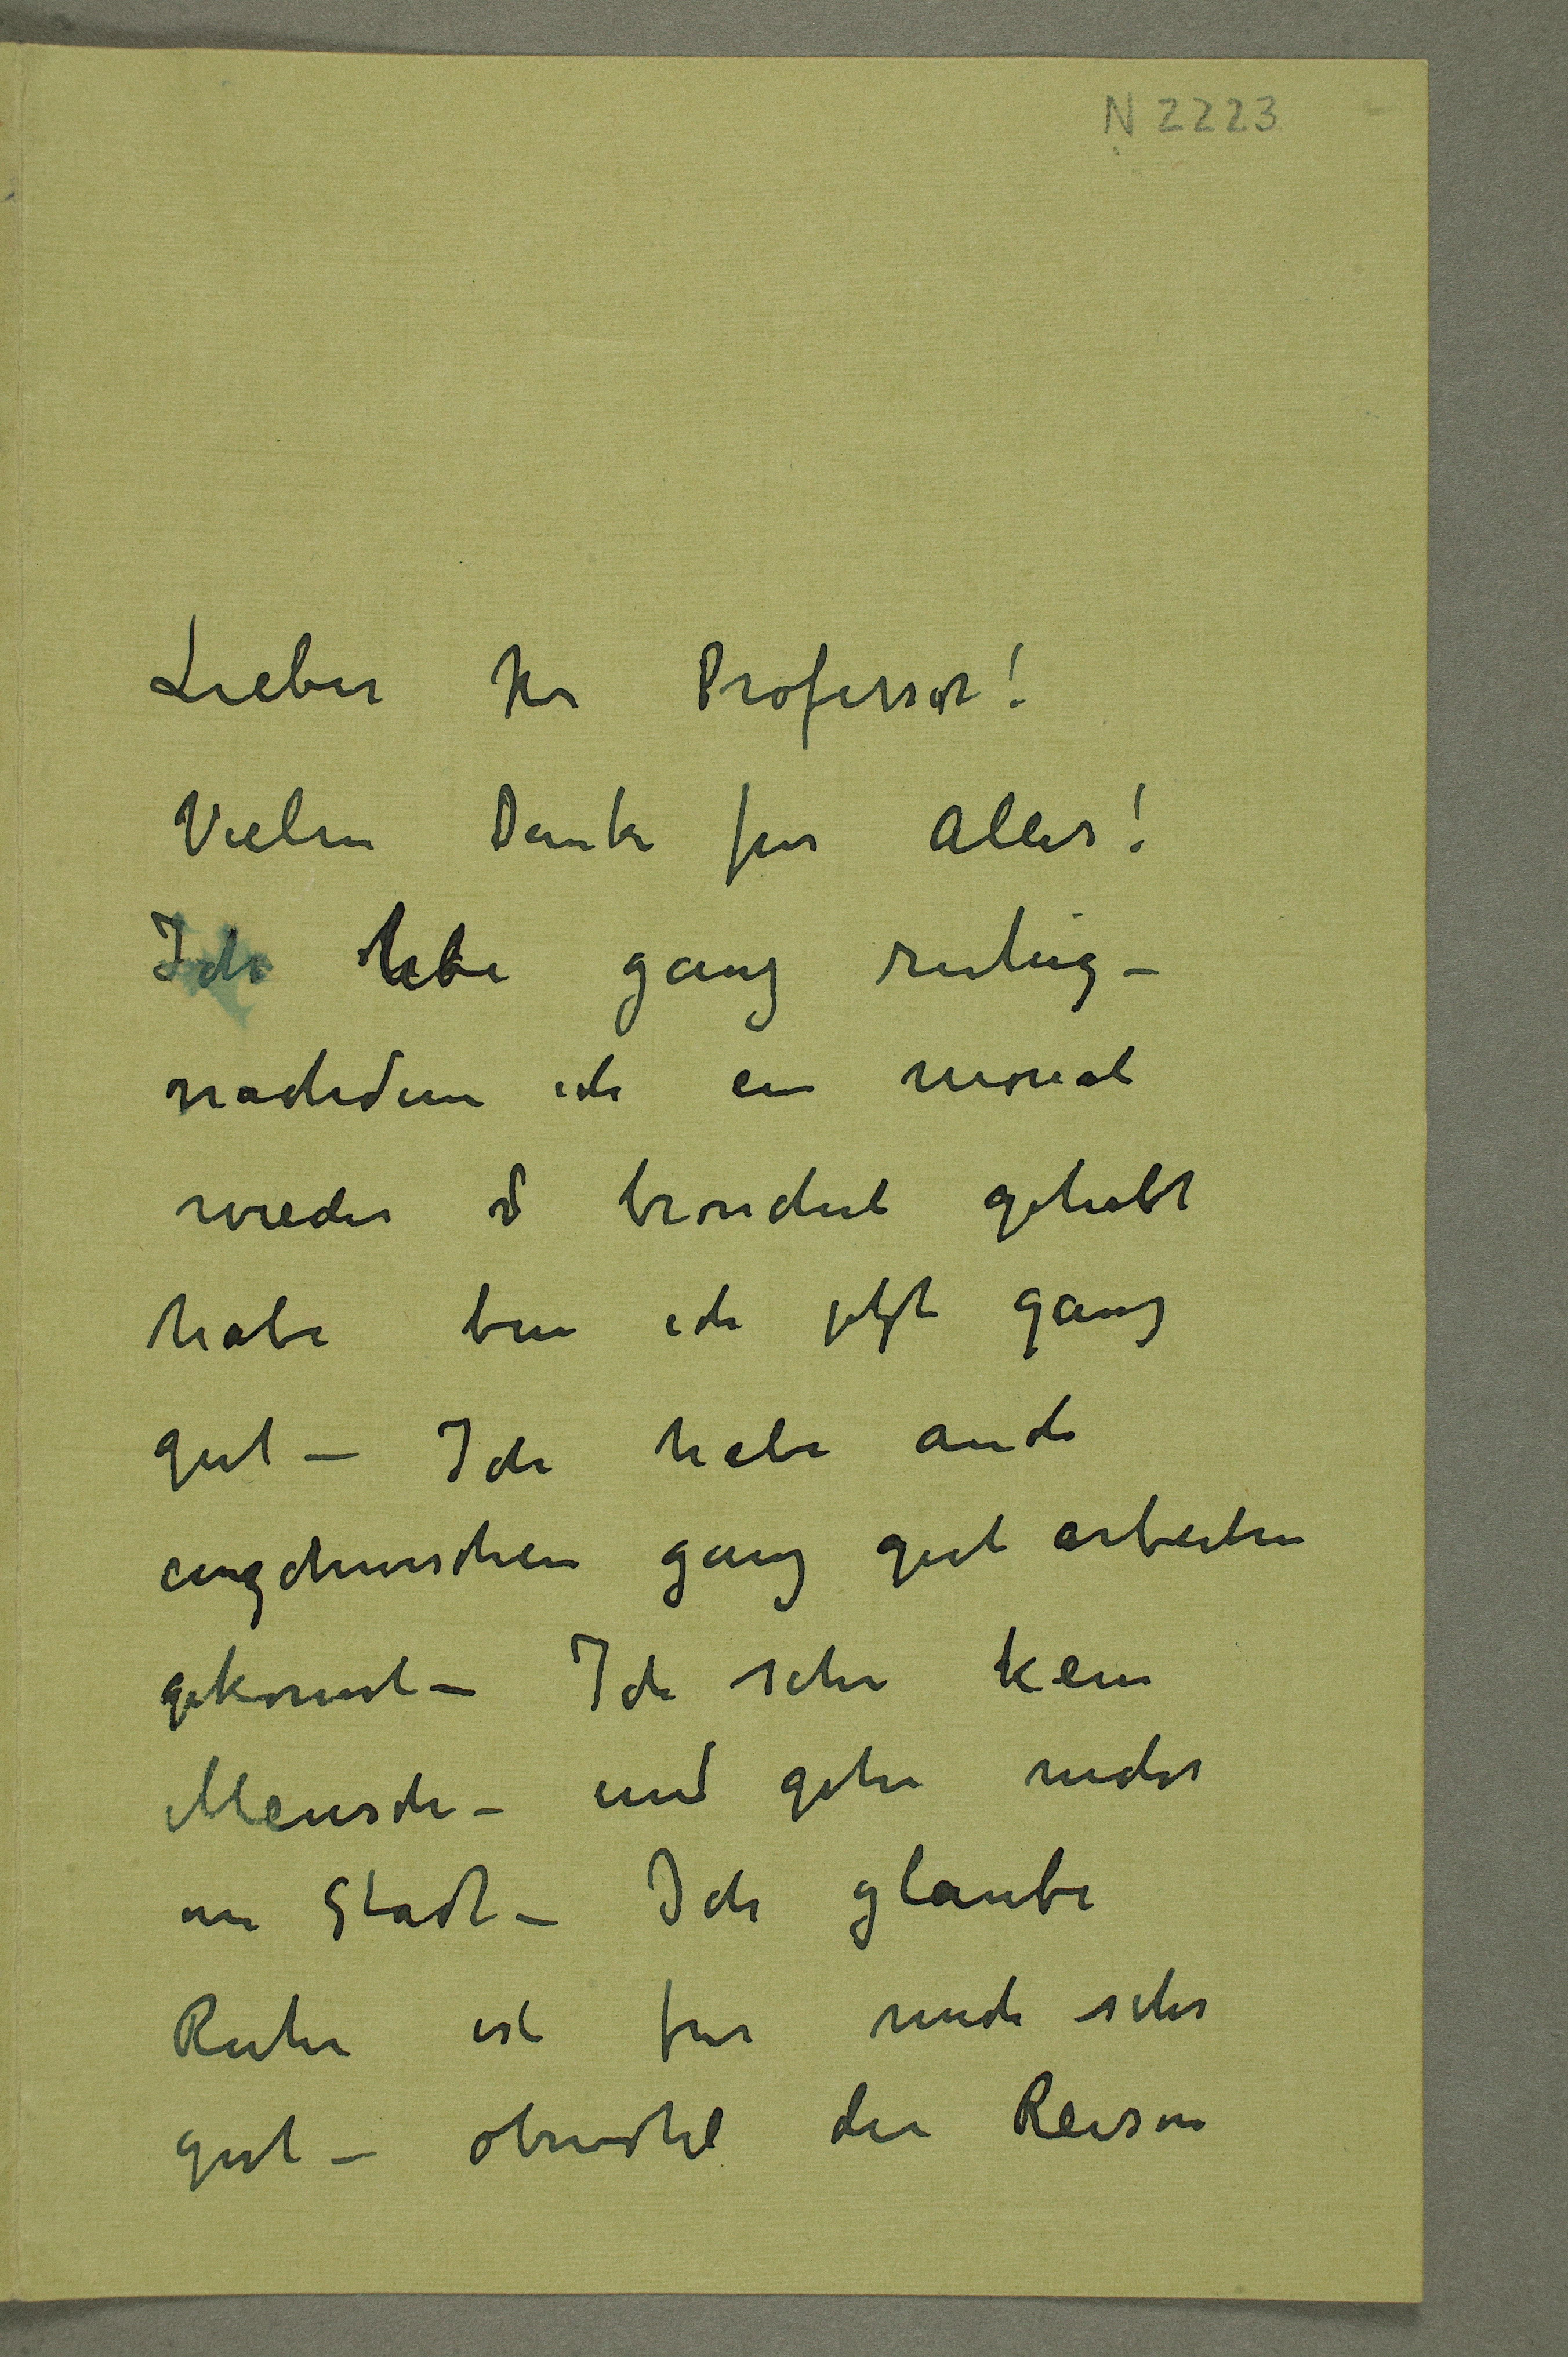 N 2223
Lieber Hr Professor!
Vielen Dank für Alles!
Ich lebe ganz ruhig –
nachdem ich ein monat
wieder bronchit gehabt
habe bin ich jetzt ganz
gut – Ich habe auch
ingzwischen ganz gut arbeiten
gekonnt – Ich sehe kein
Mensch – und gehe nicht
in Stadt – Ich glaube
Ruhe ist für mich sehr
gut – obwohl die Reisen